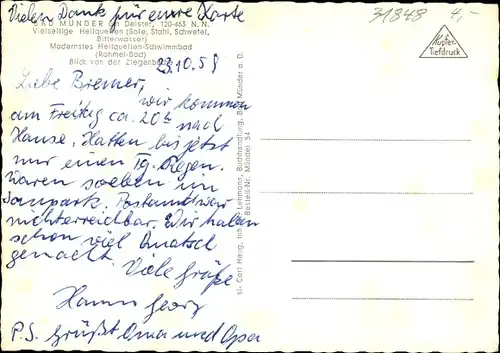 Vielen Dank für eure Karte
BAD MÜNDER am Deister, 120-463 N.N.
Vielseitige Heilquellen (Sole, Stahl, Schwefel,
Bitterwasser)
Modernstes Heilquellen-Schwimmbad
(Rohmel-Bad)
Blick von der Ziegenbuche
23.10.58
Liebe Bremer,
wir kommen
am Freitag ca. 20h nach
Hause. Hatten bis jetzt
nur einen Tg. Regen.
Waren soeben im
Postamt war
nichterreichbar. Wir haben
schon viel Quatsch
gemacht.
Viele Grüße
Hanns Georg
P.S. Grüßt Oma und Opa
Carl Haug, Inh. Lehmann, Buchhandlung, Bad Münder a. D.
Bestell-Nr. Münder 54
31848 4,-
Kupfer-
Tiefdruck